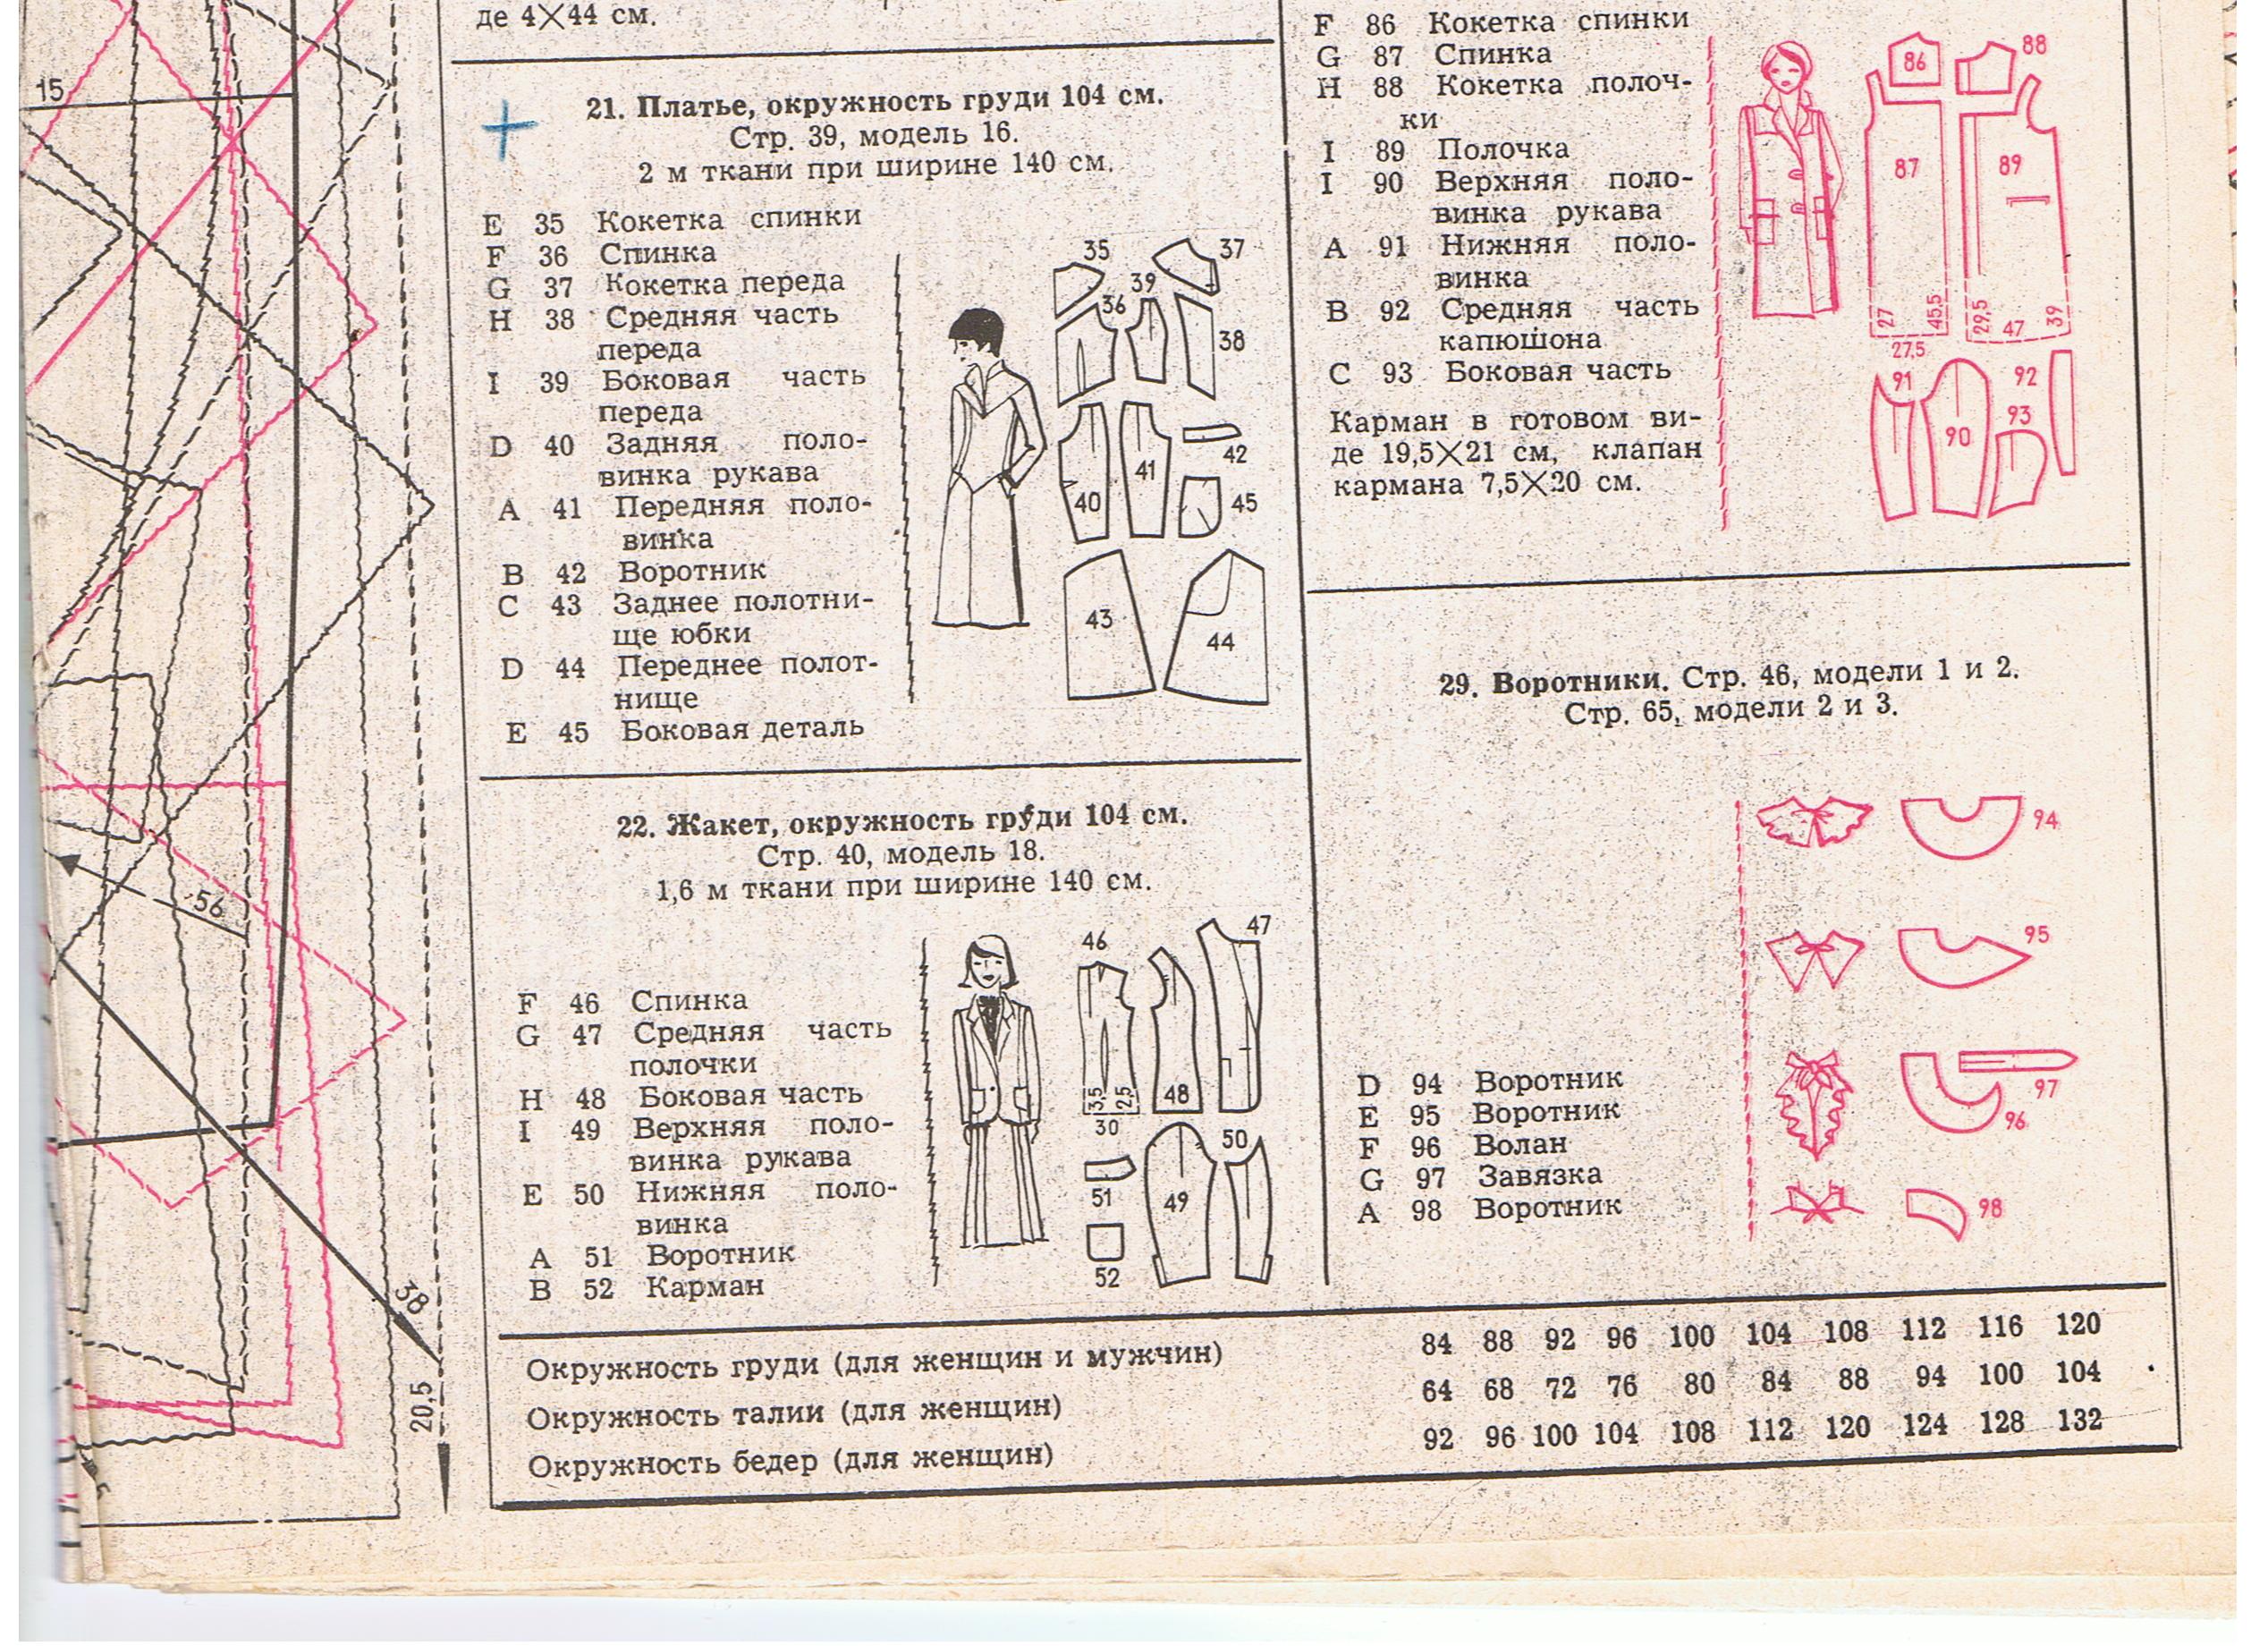 де 4×44 см.
21. Платье, окружность груди 104 см.
Стр. 39, модель 16.
2 м ткани при ширине 140 см.
E 35 Кокетка спинки
F 36 Спинка
G 37 Кокетка переда
H 38 Средняя часть
переда
I 39 Боковая часть
переда
D 40 Задняя поло-
винка рукава
A 41 Передняя поло-
винка
B 42 Воротник
C 43 Заднее полотни-
ще юбки
D 44 Переднее полот-
нище
E 45 Боковая деталь
35 37
39
36
38
42
41
40
45
43
44
22. Жакет, окружность груди 104 см.
Стр. 40, модель 18.
1,6 м ткани при ширине 140 см.
F 46 Спинка
G 47 Средняя часть
полочки
H 48 Боковая часть
I 49 Верхняя поло-
винка рукава
E 50 Нижняя поло-
винка
A 51 Воротник
B 52 Карман
46 47
3,5 2,5 48
30 50
51 49
52
F 86 Кокетка спинки
G 87 Спинка
H 88 Кокетка полоч-
ки
I 89 Полочка
I 90 Верхняя поло-
винка рукава
A 91 Нижняя поло-
винка
B 92 Средняя часть
капюшона
C 93 Боковая часть
Карман в готовом ви-
де 19,5×21 см, клапан
кармана 7,5×20 см.
86 88
87 89
27 45,5 29,5 47 39
27,5
91 92
93
90
29. Воротники. Стр. 46, модели 1 и 2.
Стр. 65, модели 2 и 3.
D 94 Воротник
E 95 Воротник
F 96 Волан
G 97 Завязка
A 98 Воротник
94
95
97
96
98
Окружность груди (для женщин и мужчин) 84 88 92 96 100 104 108 112 116 120
Окружность талии (для женщин) 64 68 72 76 80 84 88 94 100 104
Окружность бедер (для женщин) 92 96 100 104 108 112 120 124 128 132
15
56
38
20,5